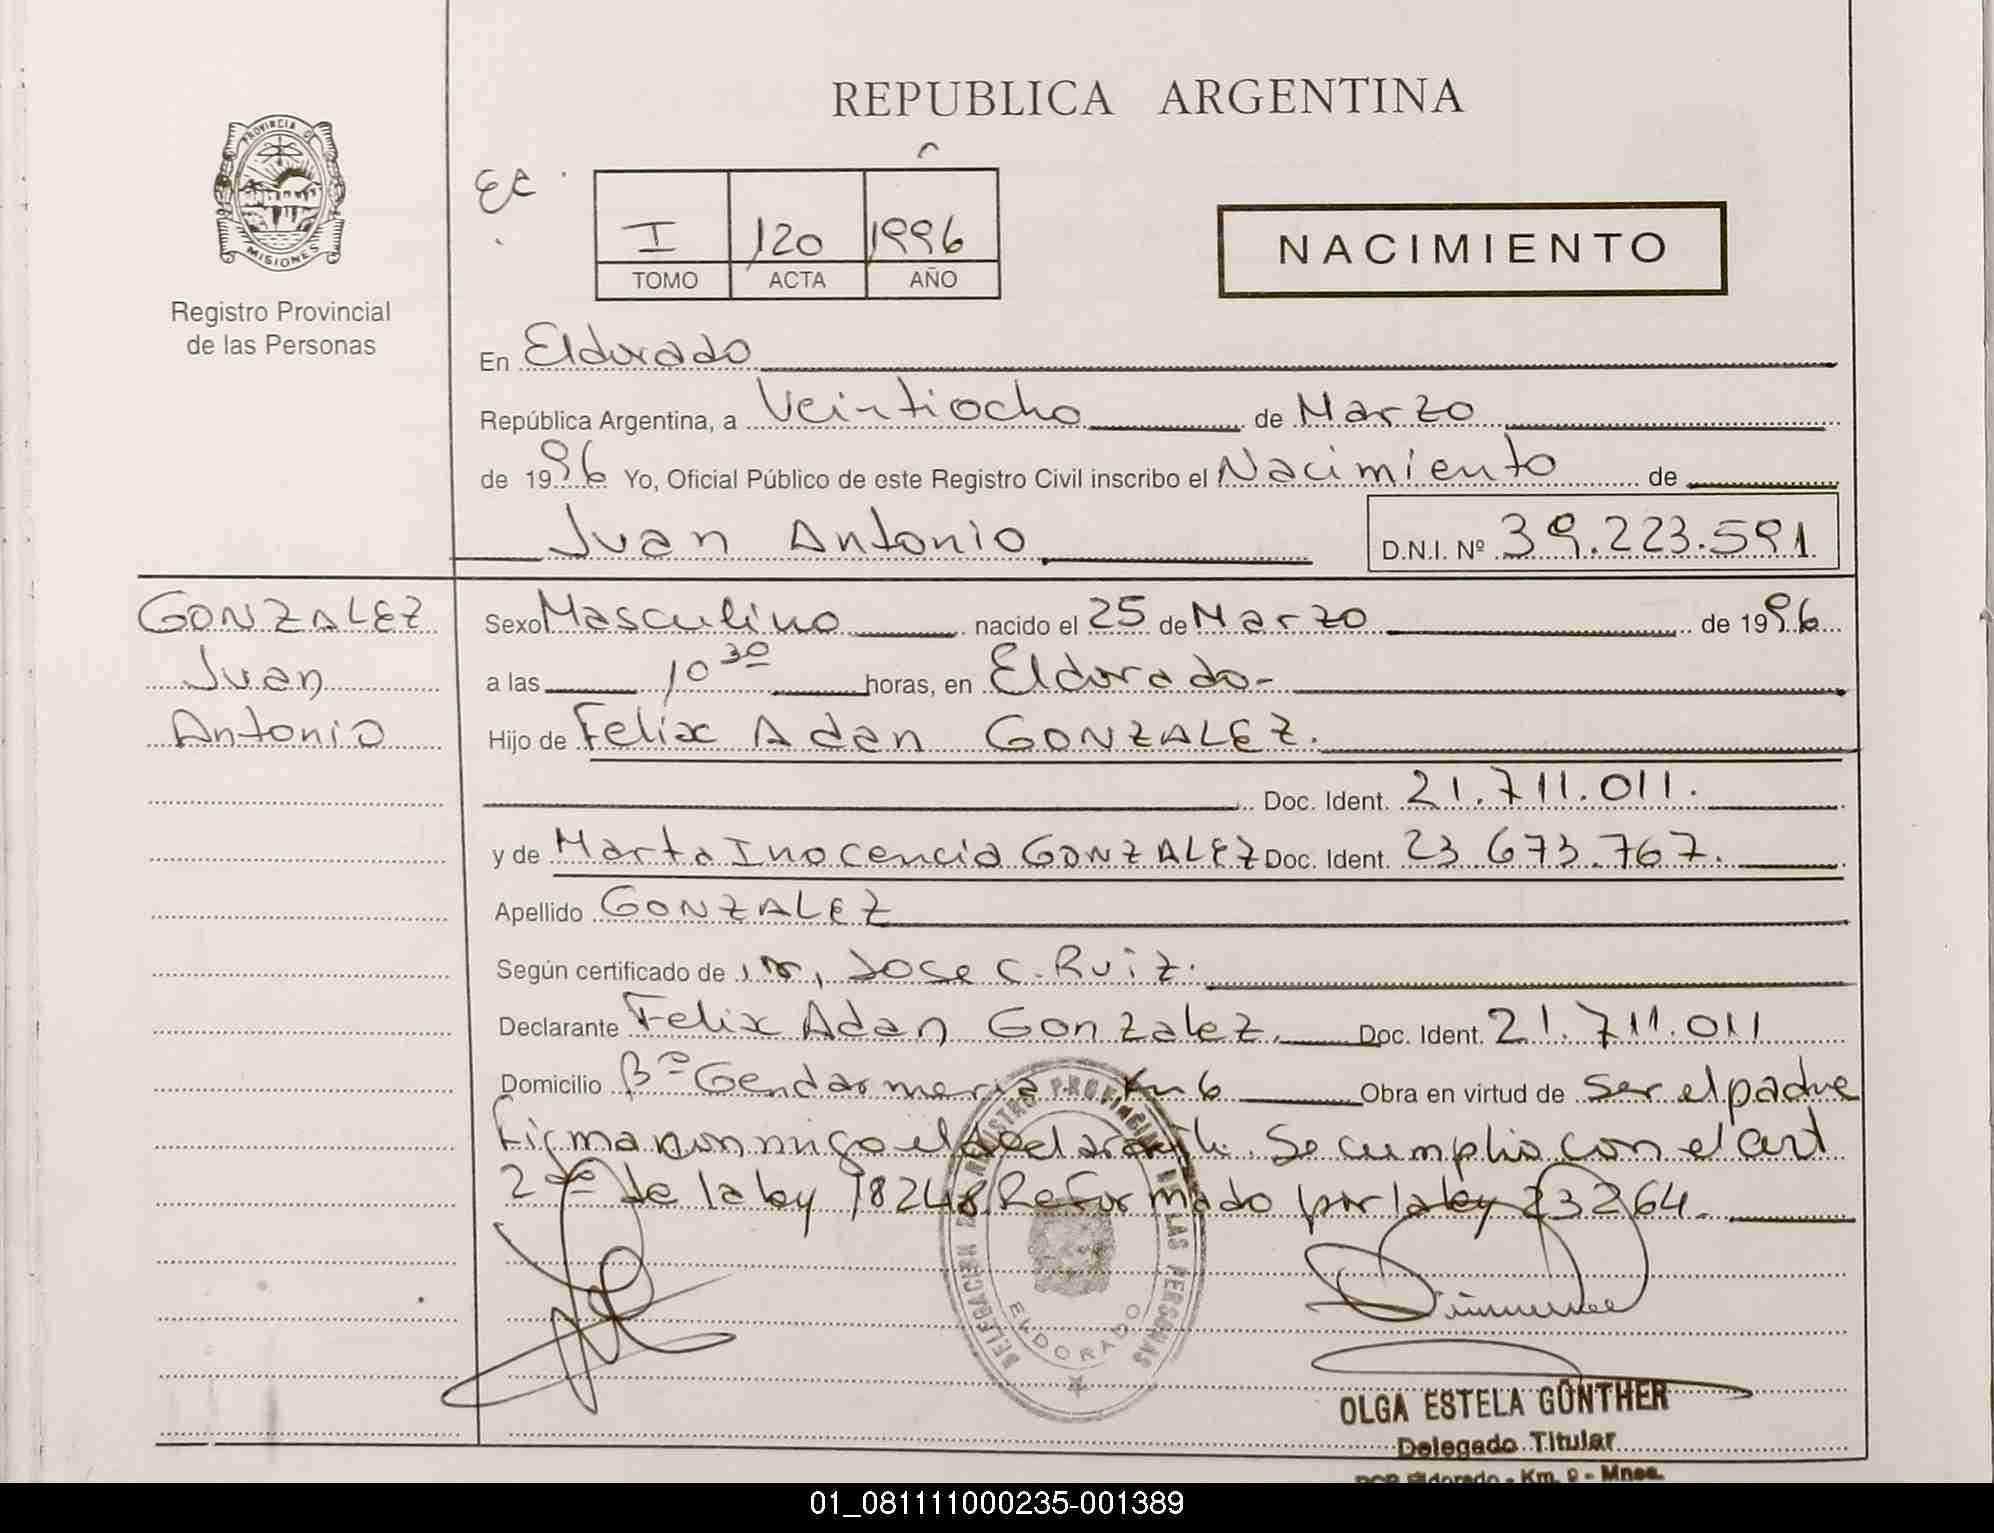 REPUBLICA ARGENTINA
PROVINCIA DE
MISIONES
Registro Provincial
de las Personas
I 120 1996
TOMO ACTA AÑO
NACIMIENTO
En Eldorado
República Argentina, a Veintiocho de Marzo
de 1996 Yo, Oficial Público de este Registro Civil inscribo el Nacimiento de
Juan Antonio D.N.I. Nº 39.223.591
GONZALEZ
Juan
Antonio
Sexo Masculino nacido el 25 de Marzo de 1996
a las 10 30 horas, en Eldorado-
Hijo de Felix Adan GONZALEZ.
Doc. Ident. 21.711.011.
y de Marta Inocencia GONZALEZ Doc. Ident. 23.673.767.
Apellido GONZALEZ
Según certificado de Jose C. Ruiz.
Declarante Felix Adan Gonzalez. Doc. Ident. 21.711.011
Domicilio Bº Gendarmeria Km 6 Obra en virtud de ser el padre
Firma conmigo el declarante. Se cumplio con el art
2do de la ley 18248 Reformado por la ley 23264.
DELEGACION DE REGISTRO PROVINCIAL DE LAS PERSONAS
ELDORADO
OLGA ESTELA GÜNTHER
Delegado Titular
Eldorado - Km. 9 - Mnes.
01_081111000235-001389